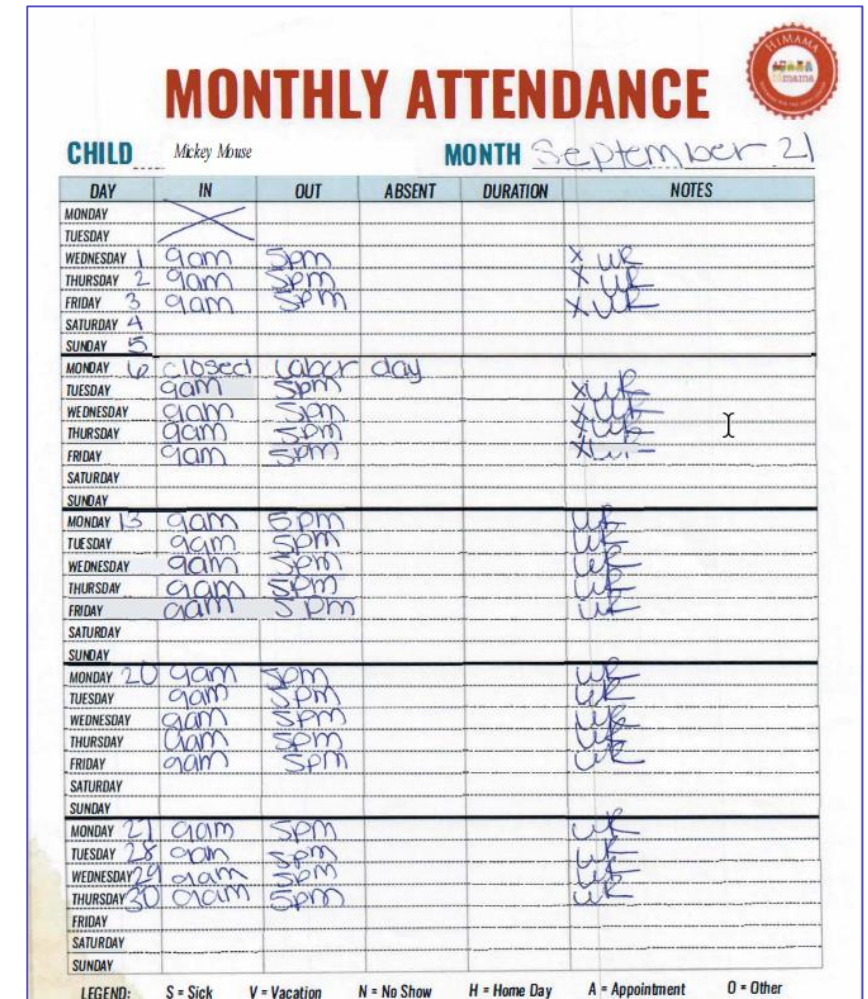 HIMAMA
himama
MONTHLY ATTENDANCE
CHILD Mickey Mouse MONTH September 21
DAY IN OUT ABSENT DURATION NOTES
MONDAY
TUESDAY
WEDNESDAY 1 9am 5pm X WR
THURSDAY 2 9am 5pm X WR
FRIDAY 3 9am 5pm X WR
SATURDAY 4
SUNDAY 5
MONDAY 6 closed Labor day
TUESDAY 9am 5pm X WR
WEDNESDAY 9am 5pm X WR
THURSDAY 9am 5pm X WR
FRIDAY 9am 5pm X
SATURDAY
SUNDAY
MONDAY 13 9am 5pm WR
TUESDAY 9am 5pm WR
WEDNESDAY 9am 5pm WR
THURSDAY 9am 5pm WR
FRIDAY 9am 5pm WR
SATURDAY
SUNDAY
MONDAY 20 9am 5pm WR
TUESDAY 9am 5pm WR
WEDNESDAY 9am 5pm WR
THURSDAY 9am 5pm WR
FRIDAY 9am 5pm WR
SATURDAY
SUNDAY
MONDAY 27 9am 5pm WR
TUESDAY 28 9am 5pm WR
WEDNESDAY 29 9am 5pm WR
THURSDAY 30 9am 5pm WR
FRIDAY
SATURDAY
SUNDAY
LEGEND: S = Sick V = Vacation N = No Show H = Home Day A = Appointment O = Other